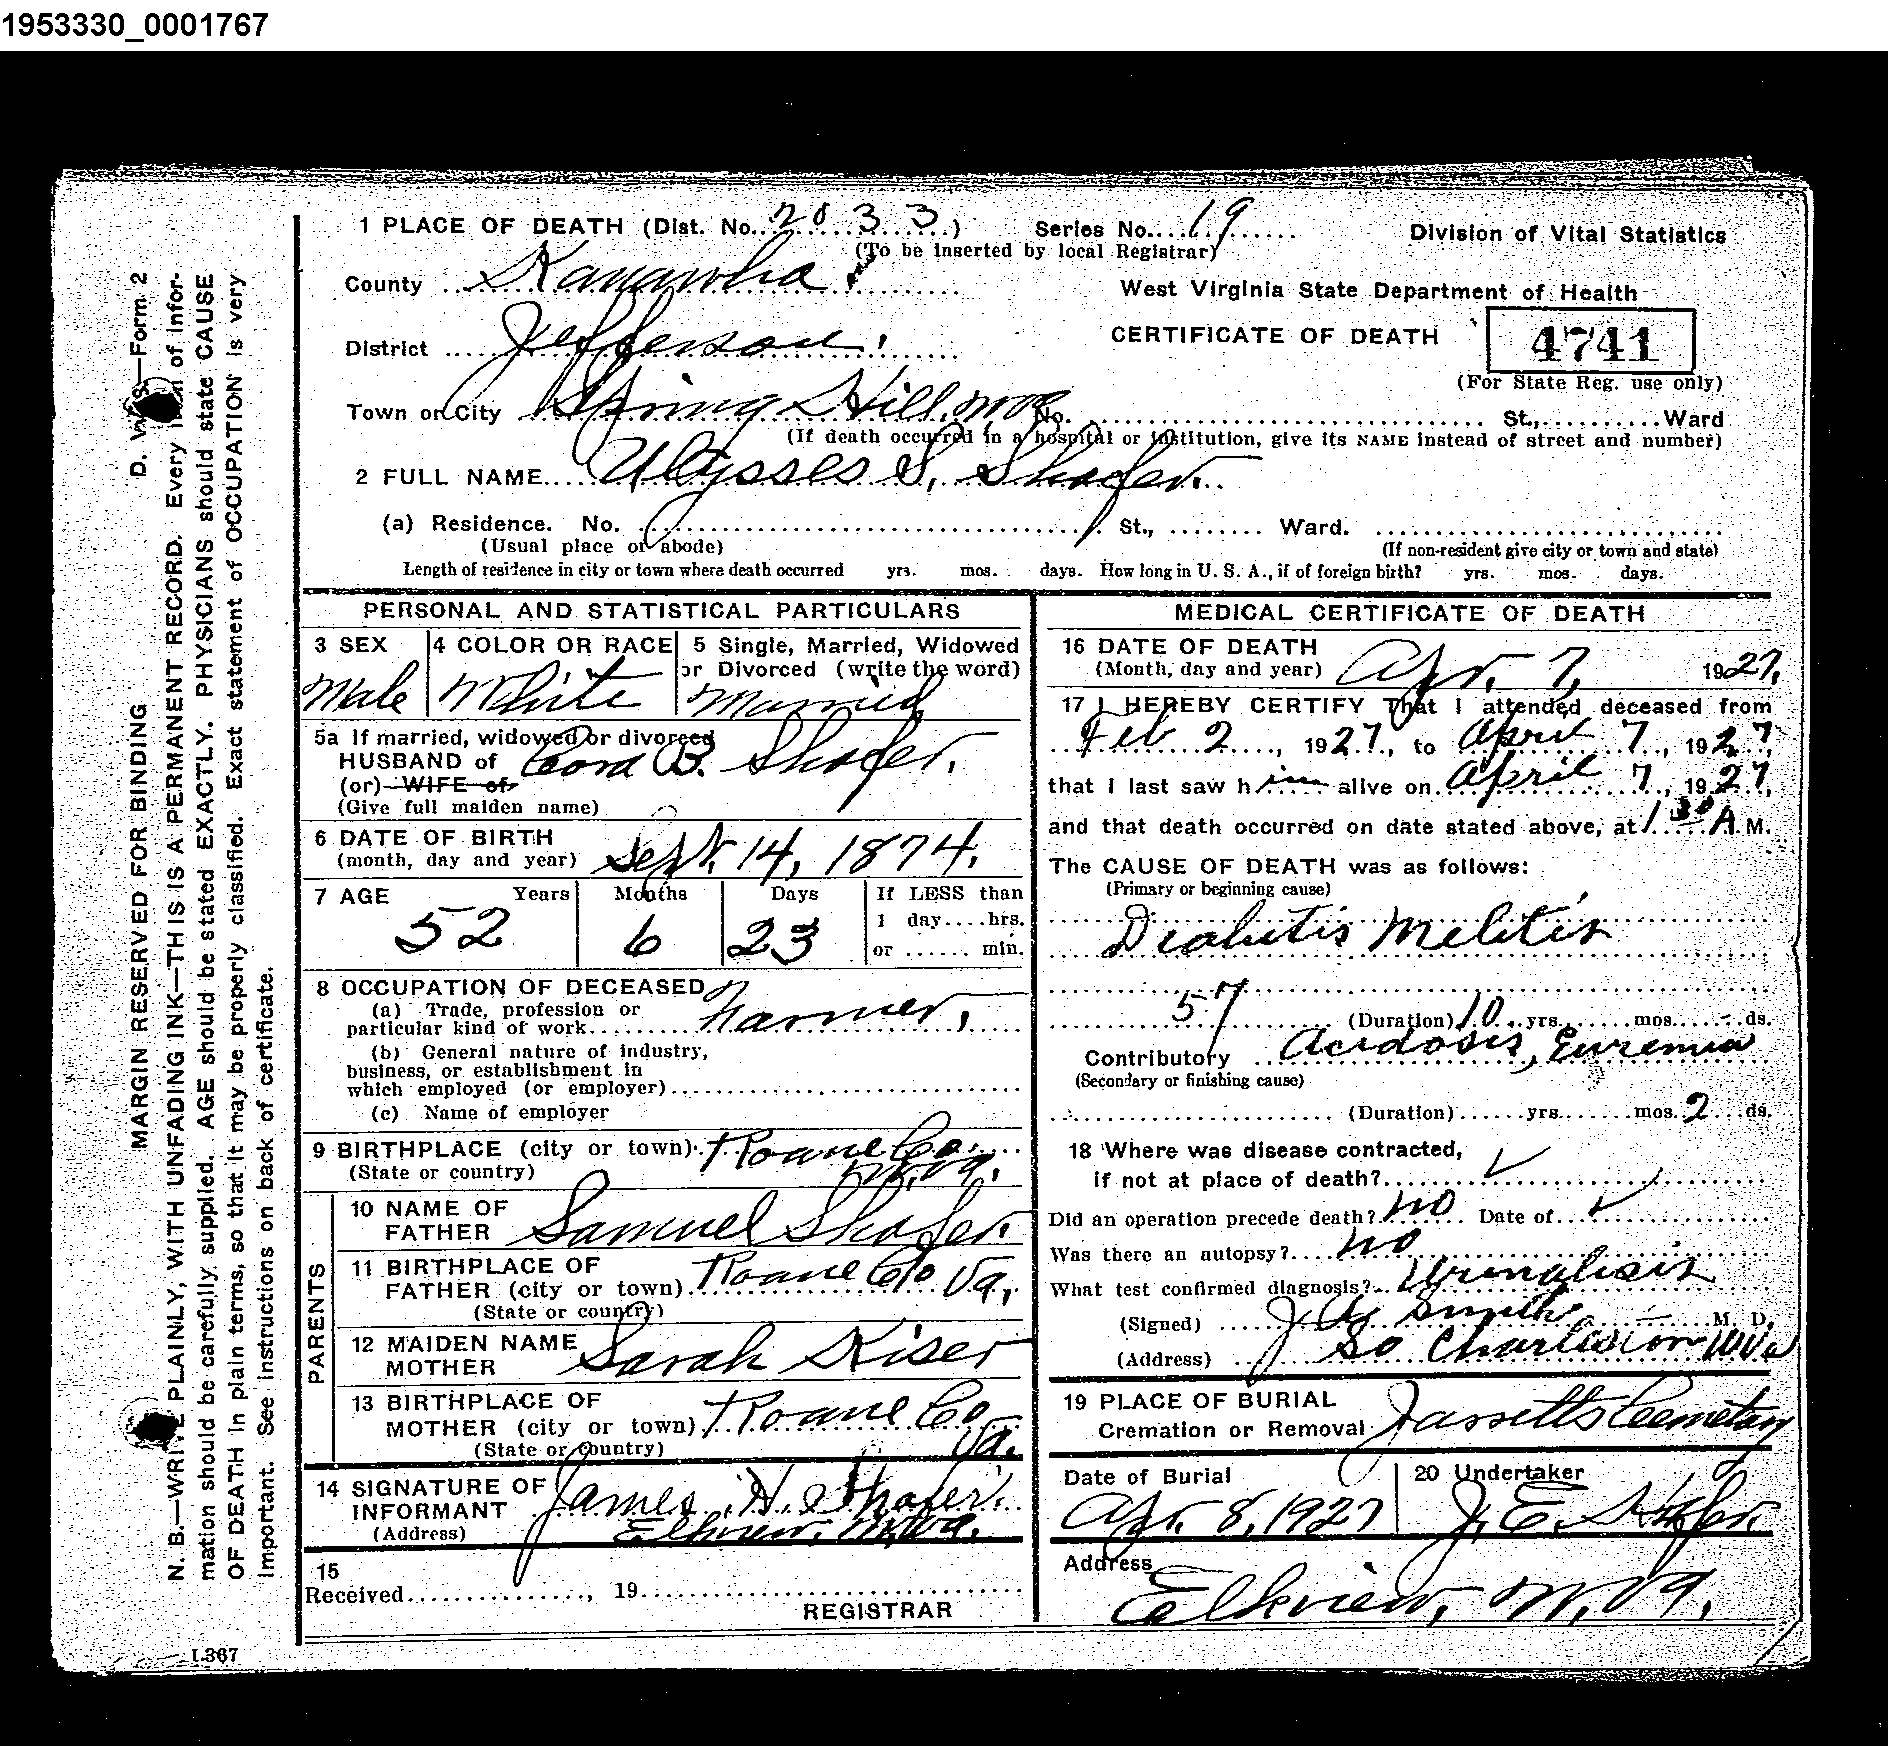 1953330_0001767
1 PLACE OF DEATH (Dist. No. 2033) Series No. 19 Division of Vital Statistics
(To be inserted by local Registrar)
County Kanawha West Virginia State Department of Health
CERTIFICATE OF DEATH 4741
District Jefferson
(For State Reg. use only)
Town or City Spring Hill. W.Va. No. St., Ward
(If death occurred in a hospital or institution, give its NAME instead of street and number)
2 FULL NAME Ulysses S. Shafer.
(a) Residence. No. St., Ward.
(Usual place of abode) (If non-resident give city or town and state)
Length of residence in city or town where death occurred yrs. mos. days. How long in U. S. A., if of foreign birth? yrs. mos. days.
PERSONAL AND STATISTICAL PARTICULARS
3 SEX 4 COLOR OR RACE 5 Single, Married, Widowed
or Divorced (write the word)
Male White Married
5a If married, widowed or divorced
HUSBAND of Cora B. Shafer.
(or) WIFE of
(Give full maiden name)
6 DATE OF BIRTH
(month, day and year) Sept. 14, 1874.
7 AGE Years Months Days If LESS than
1 day....hrs.
52 6 23 or ...... min.
8 OCCUPATION OF DECEASED
(a) Trade, profession or
particular kind of work Farmer,
(b) General nature of industry,
business, or establishment in
which employed (or employer)
(c) Name of employer
9 BIRTHPLACE (city or town) Roane Co.
(State or country) W.Va.
PARENTS
10 NAME OF
FATHER Samuel Shafer.
11 BIRTHPLACE OF
FATHER (city or town) Roane Co Va.
(State or country)
12 MAIDEN NAME
MOTHER Sarah Kiser
13 BIRTHPLACE OF
MOTHER (city or town) Roane Co
(State or country) Va.
14 SIGNATURE OF
INFORMANT James H. Shafer.
(Address) Elkview, W.Va.
15
Received , 19
REGISTRAR
MEDICAL CERTIFICATE OF DEATH
16 DATE OF DEATH
(Month, day and year) Apr. 7, 1927.
17 I HEREBY CERTIFY That I attended deceased from
Feb 2, 1927, to April 7, 1927,
that I last saw him alive on April 7, 1927,
and that death occurred on date stated above, at 1 30 A M.
The CAUSE OF DEATH was as follows:
(Primary or beginning cause)
Diabitis Melitis
57
(Duration) 10 yrs. mos. - ds.
Contributory Acidosis, Euremia
(Secondary or finishing cause)
(Duration) yrs. mos. 2 ds.
18 Where was disease contracted,
if not at place of death?
Did an operation precede death? No Date of
Was there an autopsy? No
What test confirmed diagnosis? Urinalisis
(Signed) Smith M. D.
(Address) So Charleston WVa
19 PLACE OF BURIAL
Cremation or Removal Jarretts Cemetery
Date of Burial 20 Undertaker
Apr. 8, 1927 J. E. Shafer.
Address
Elkview, W. Va.
D. V. S.—Form 2
MARGIN RESERVED FOR BINDING
N. B.—WRITE PLAINLY, WITH UNFADING INK—THIS IS A PERMANENT RECORD. Every item of infor-
mation should be carefully supplied. AGE should be stated EXACTLY. PHYSICIANS should state CAUSE
OF DEATH in plain terms, so that it may be properly classified. Exact statement of OCCUPATION is very
important. See instructions on back of certificate.
L367